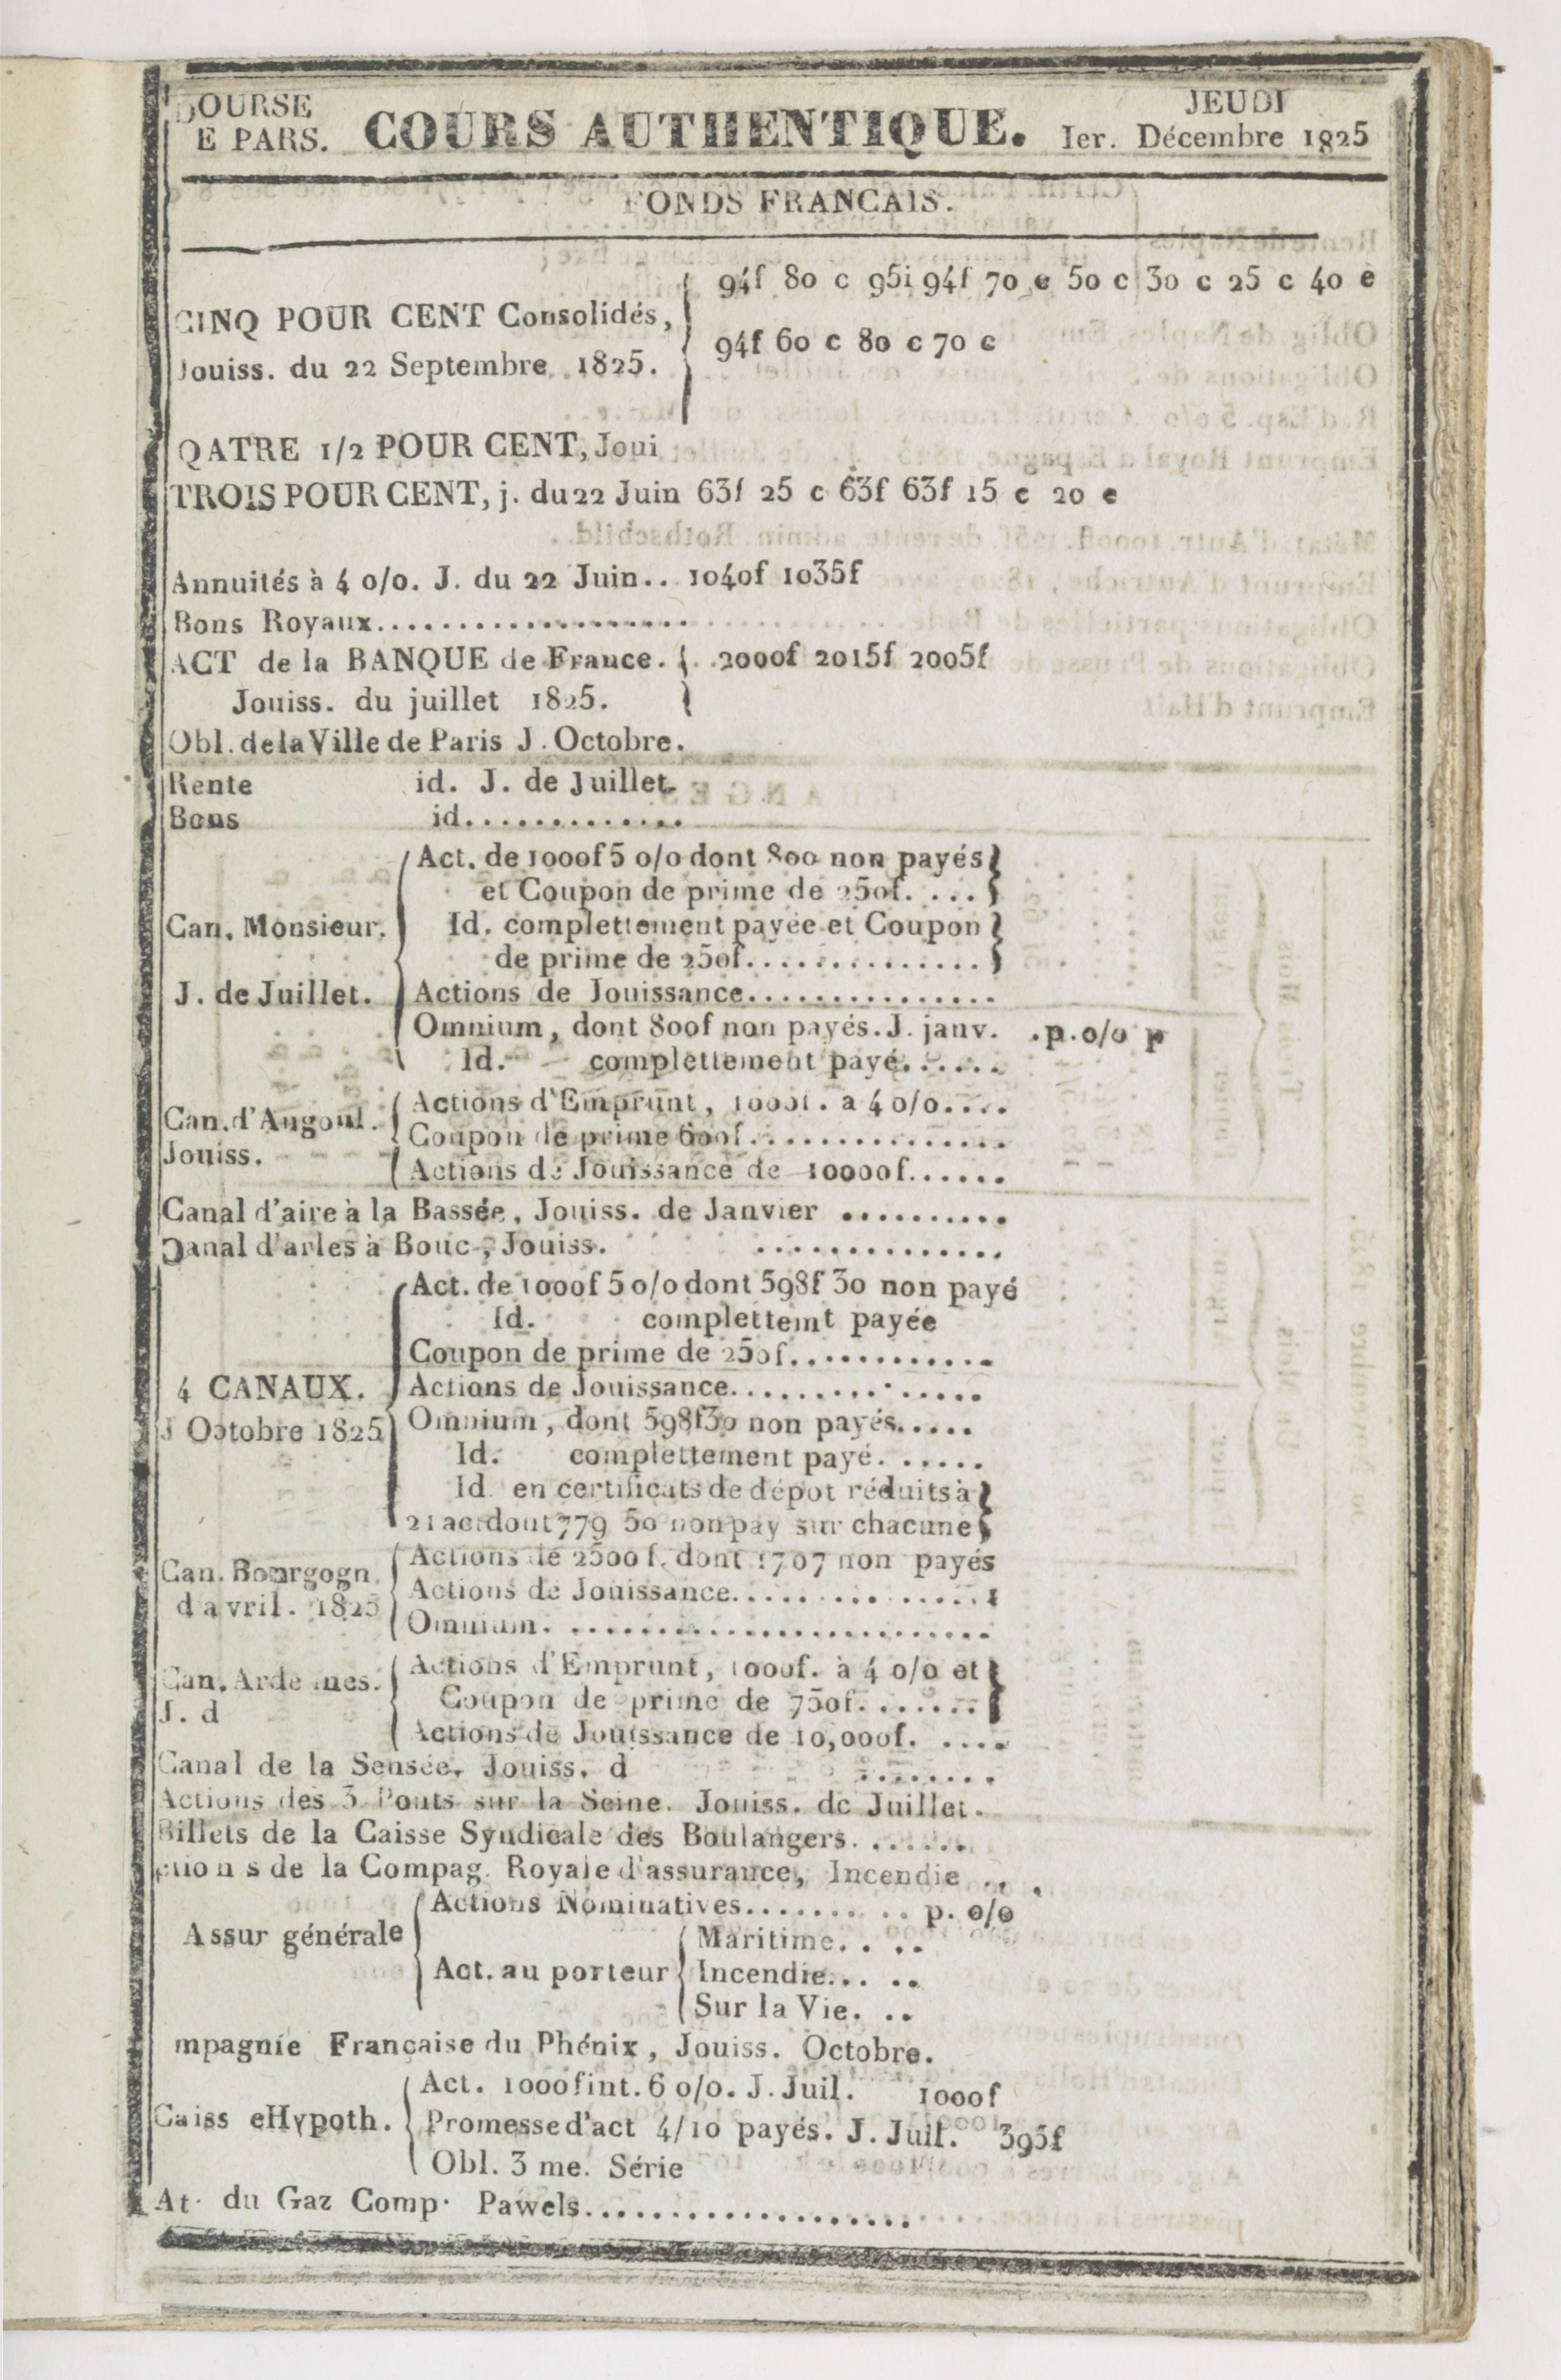 BOURSE
E PARS.
COURS AUTHENTIQUE.
JEUDI
Ier. Décembre 1825
FONDS FRANCAIS.
CINQ POUR CENT Consolidés,
Jouiss. du 22 Septembre 1825.
94f 80 c 95f 94f 70 c 50 c 30 c 25 c 40 c
94f 60 c 80 c 70 c
QATRE 1/2 POUR CENT, Joui
TROIS POUR CENT, j. du 22 Juin 63f 25 c 63f 63f 15 c 20 c
Annuités à 4 o/o. J. du 22 Juin.. 1040f 1035f
Bons Royaux...................
ACT de la BANQUE de France. 2000f 2015f 2005f
Jouiss. du juillet 1825.
Obl. de la Ville de Paris J. Octobre.
Rente id. J. de Juillet.
Bons id.............
Can. Monsieur.
J. de Juillet.
Act. de 1000f 5 o/o dont 800 non payés
et Coupon de prime de 250f. ...
Id. complettement payée et Coupon
de prime de 250f..............
Actions de Jouissance...............
Omnium, dont 800f non payés. J. janv. .p.o/o p
Id. complettement payé......
Can. d'Angoul.
Jouiss.
Actions d'Emprunt, 1000f. a 4 o/o....
Coupon de prime 600f...............
Actions de Jouissance de 10000f......
Canal d'aire à la Bassée, Jouiss. de Janvier ..........
Canal d'arles à Bouc, Jouiss. ..............
4 CANAUX.
J Octobre 1825
Act. de 1000f 5 o/o dont 598f 30 non payé
Id. complettemt payée
Coupon de prime de 250f............
Actions de Jouissance...............
Omnium, dont 598f30 non payés.....
Id. complettement payé. .....
Id en certificats de dépot réduits à
21 act dont 779 50 non pay sur chacune
Can. Bourgogn.
d avril. 1825
Actions de 2500 f. dont 1707 non payés
Actions de Jouissance...............
Omnium. .........................
Can. Ardennes.
J. d
Actions d'Emprunt, 1000f. à 4 o/o et
Coupon de prime de 750f.......
Actions de Jouissance de 10,000f. ....
Canal de la Sensée, Jouiss. d ........
Actions des 3 Ponts sur la Seine. Jouiss. de Juillet.
Billets de la Caisse Syndicale des Boulangers. ......
ctions de la Compag. Royale d'assurance, Incendie ...
Assur générale
Actions Nominatives.......... p. o/o
Act. au porteur
Maritime. . ..
Incendie... ..
Sur la Vie. ..
mpagnie Française du Phénix, Jouiss. Octobre.
Caiss eHypoth.
Act. 1000f int. 6 o/o. J. Juil. 1000f
Promesse d'act 4/10 payés. J. Juil. 395f
Obl. 3 me. Série
At. du Gaz Comp. Pawels...................